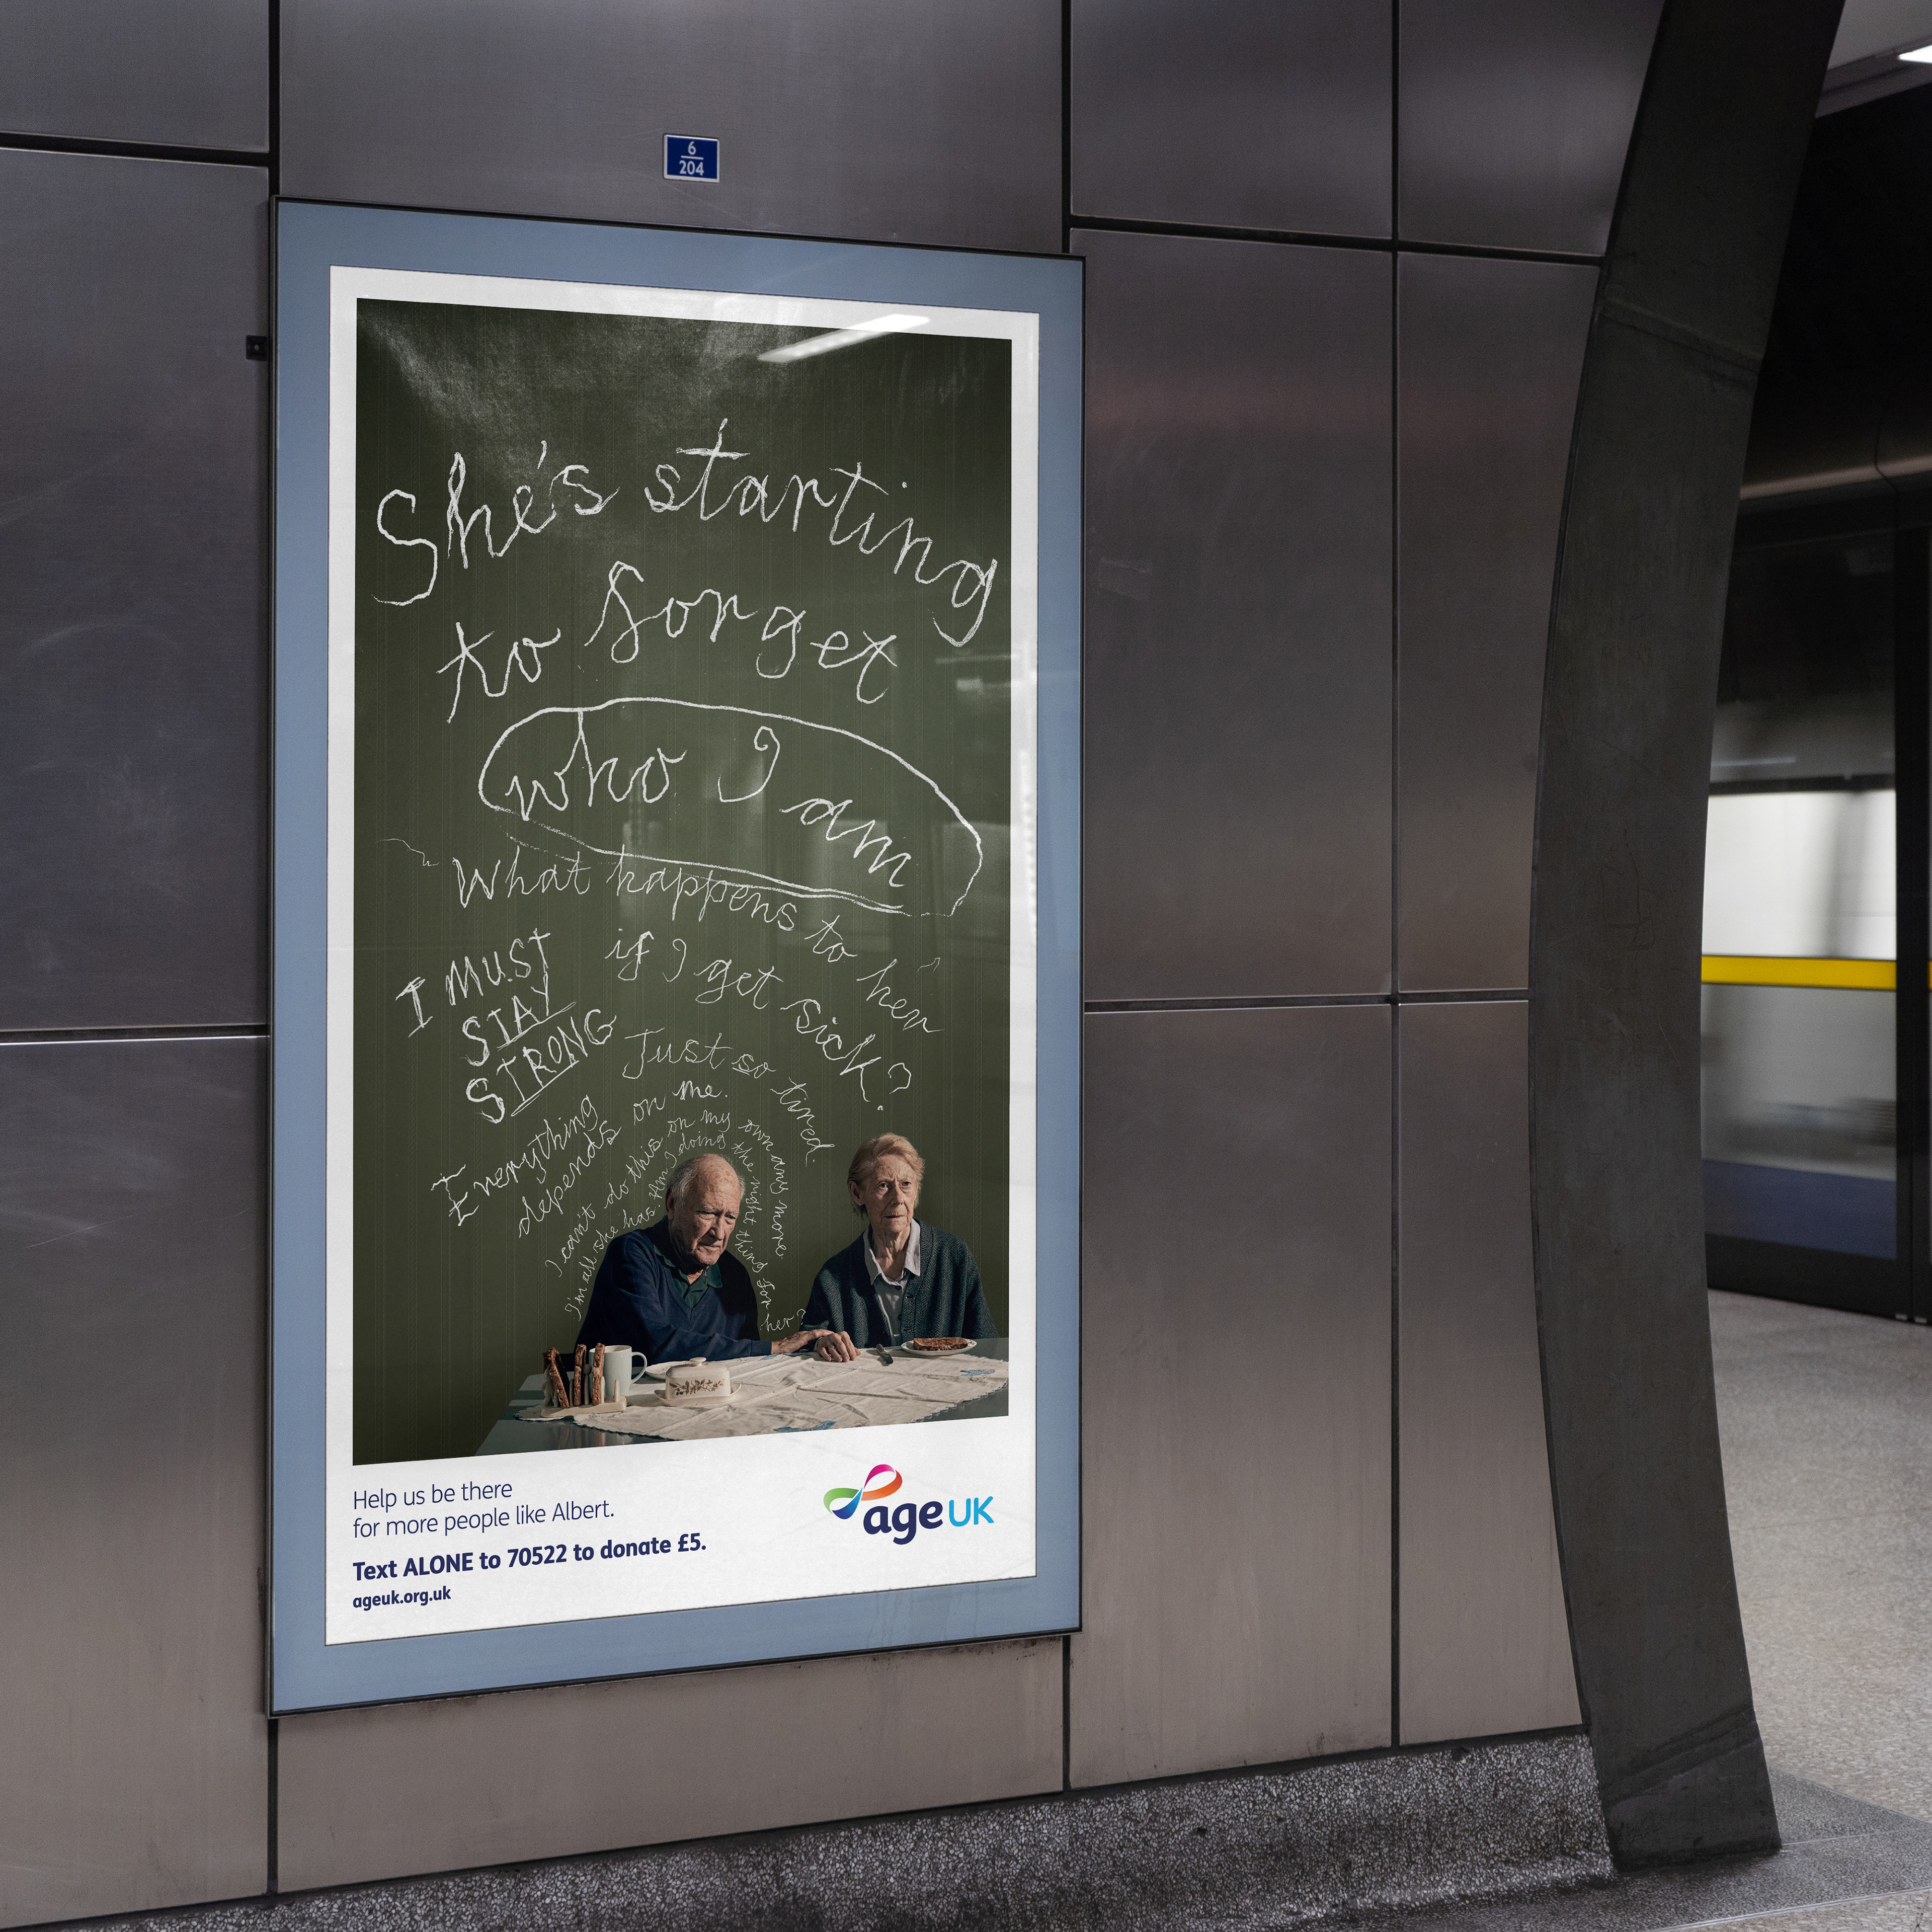 6
204
She's starting
to forget
who I am
What happens to her
if I get sick?
I MUST
STAY
STRONG
Just so tired.
Everything
depends on me.
I can't do this on my own any more
I'm all she has. Am I doing the right thing for her?
Help us be there
for more people like Albert.
Text ALONE to 70522 to donate £5.
ageuk.org.uk
age UK